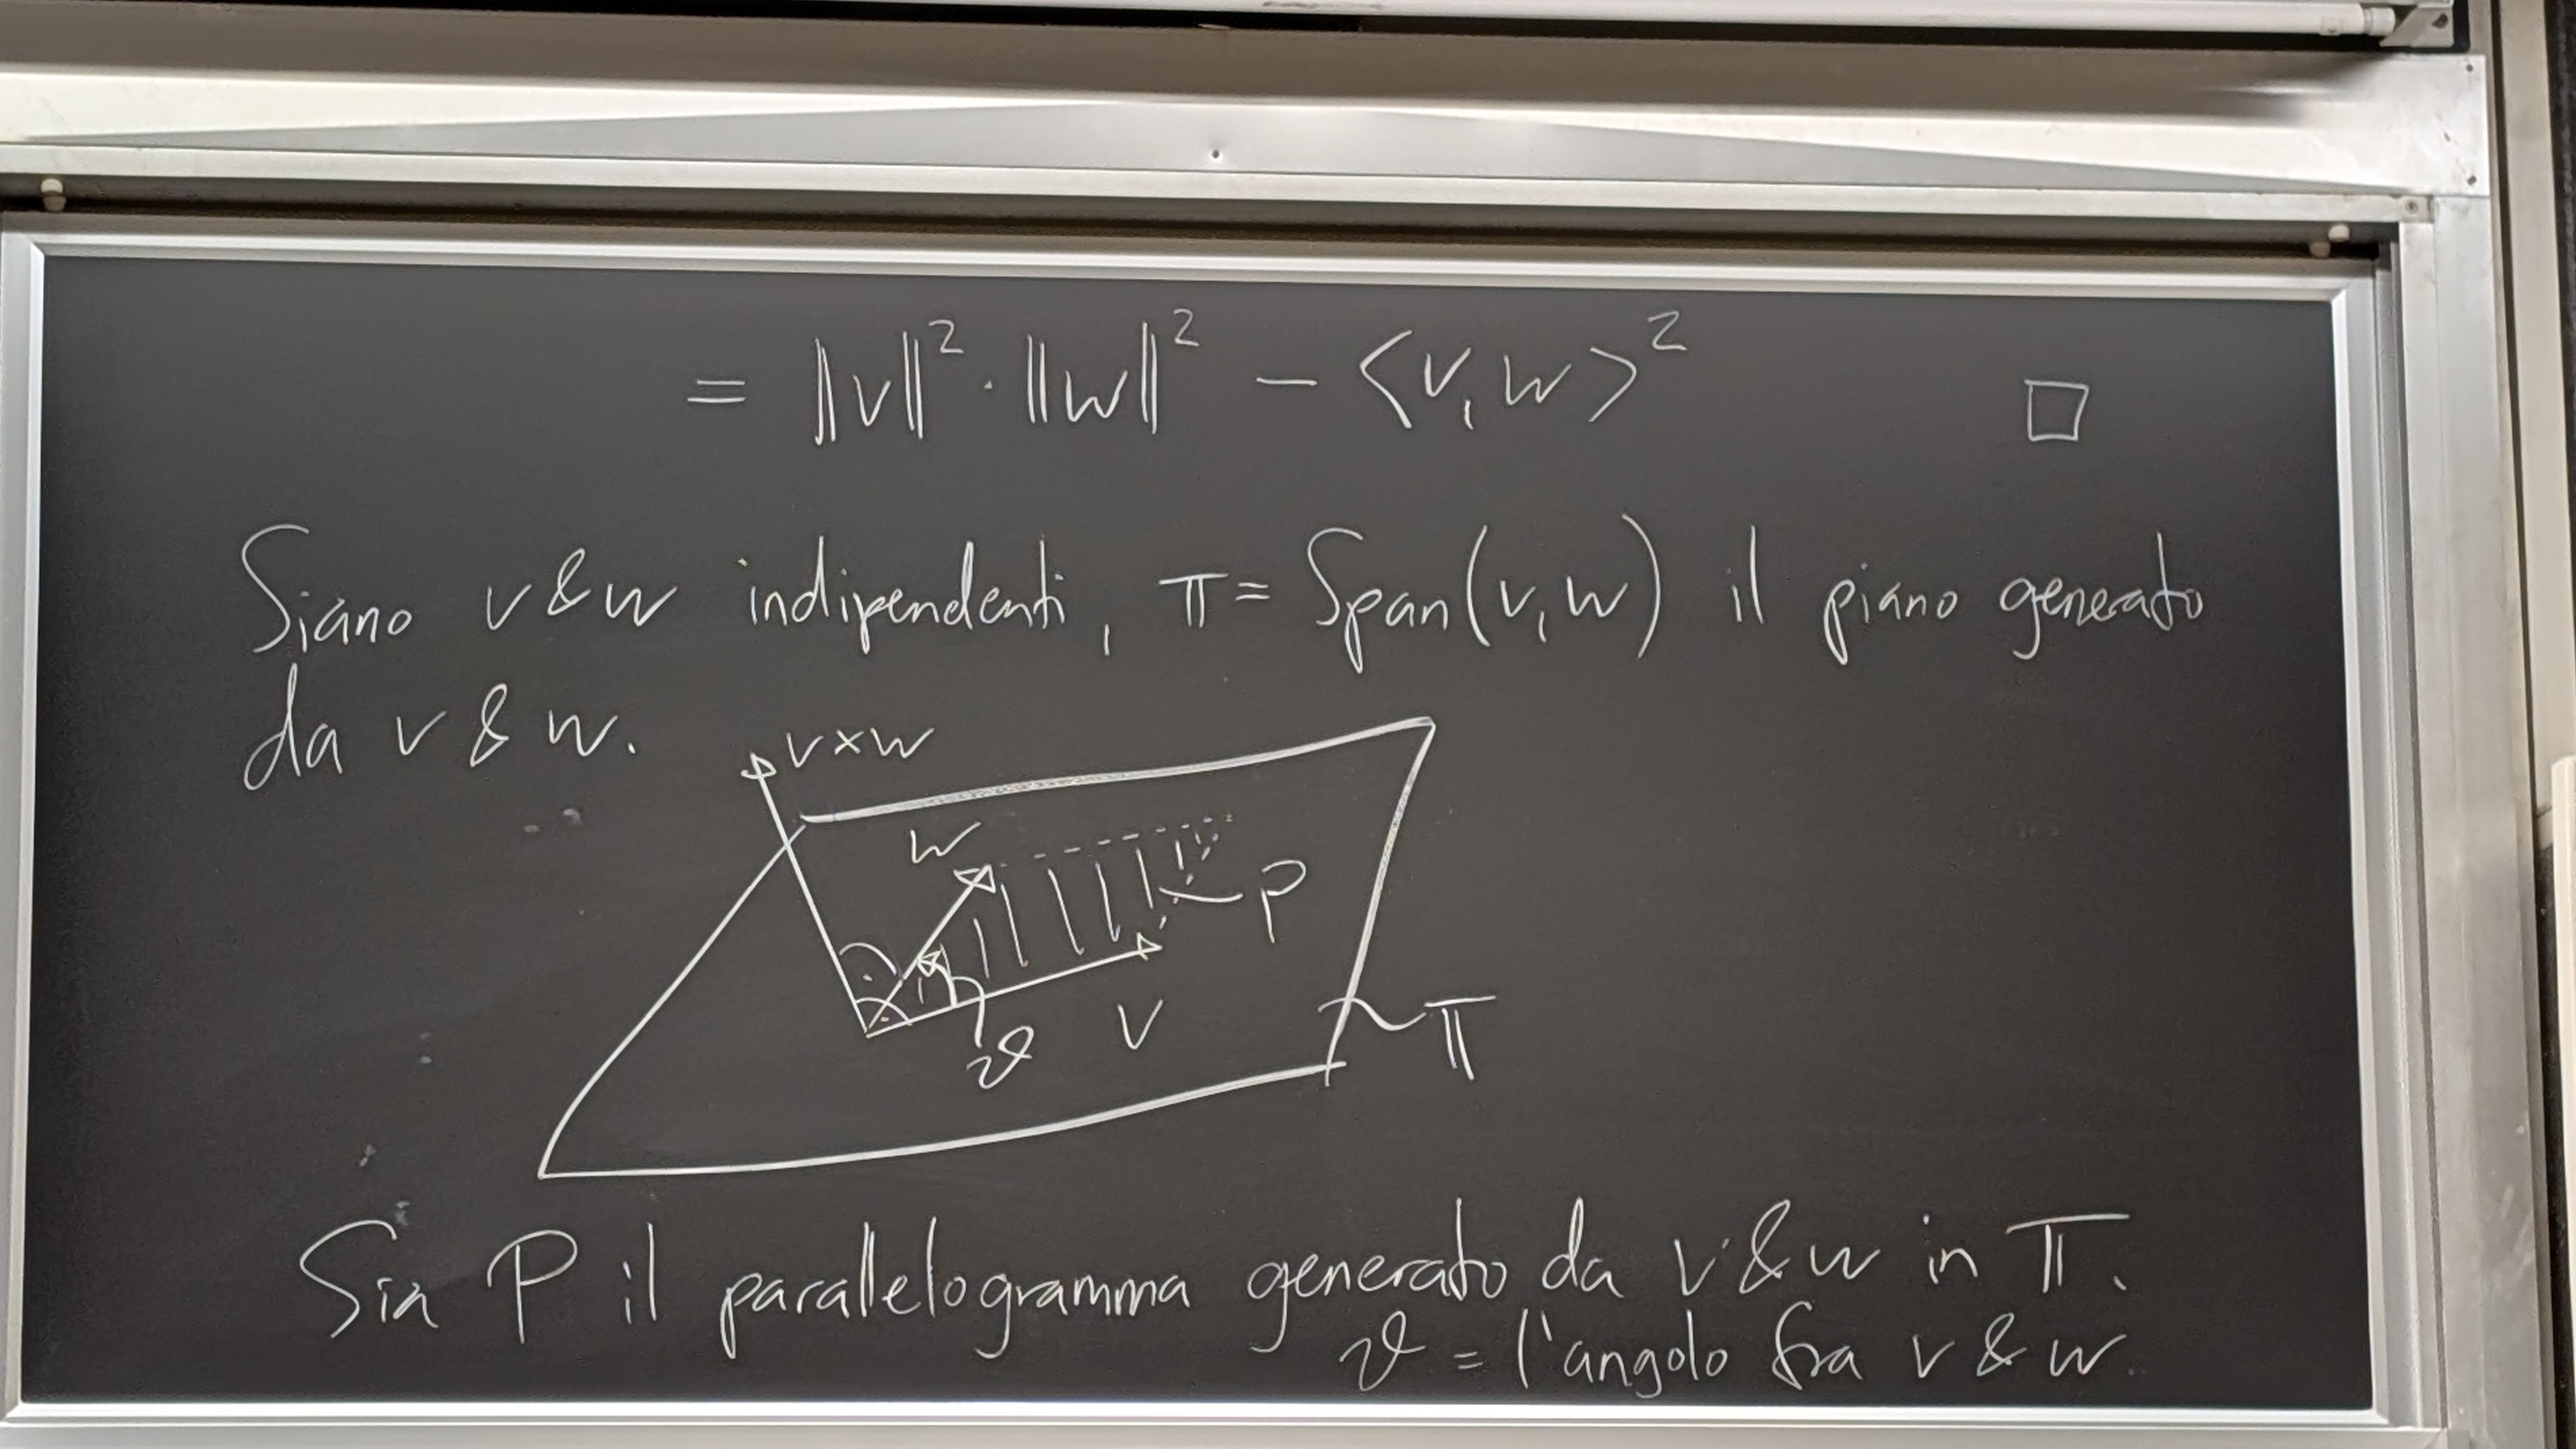 = ‖v‖² · ‖w‖² − <v,w>² □
Siano v & w indipendenti, π = Span(v,w) il piano generato
da v & w.
v×w
w
P
v
ϑ
π
Sia P il parallelogramma generato da v & w in π.
ϑ = l'angolo fra v & w.